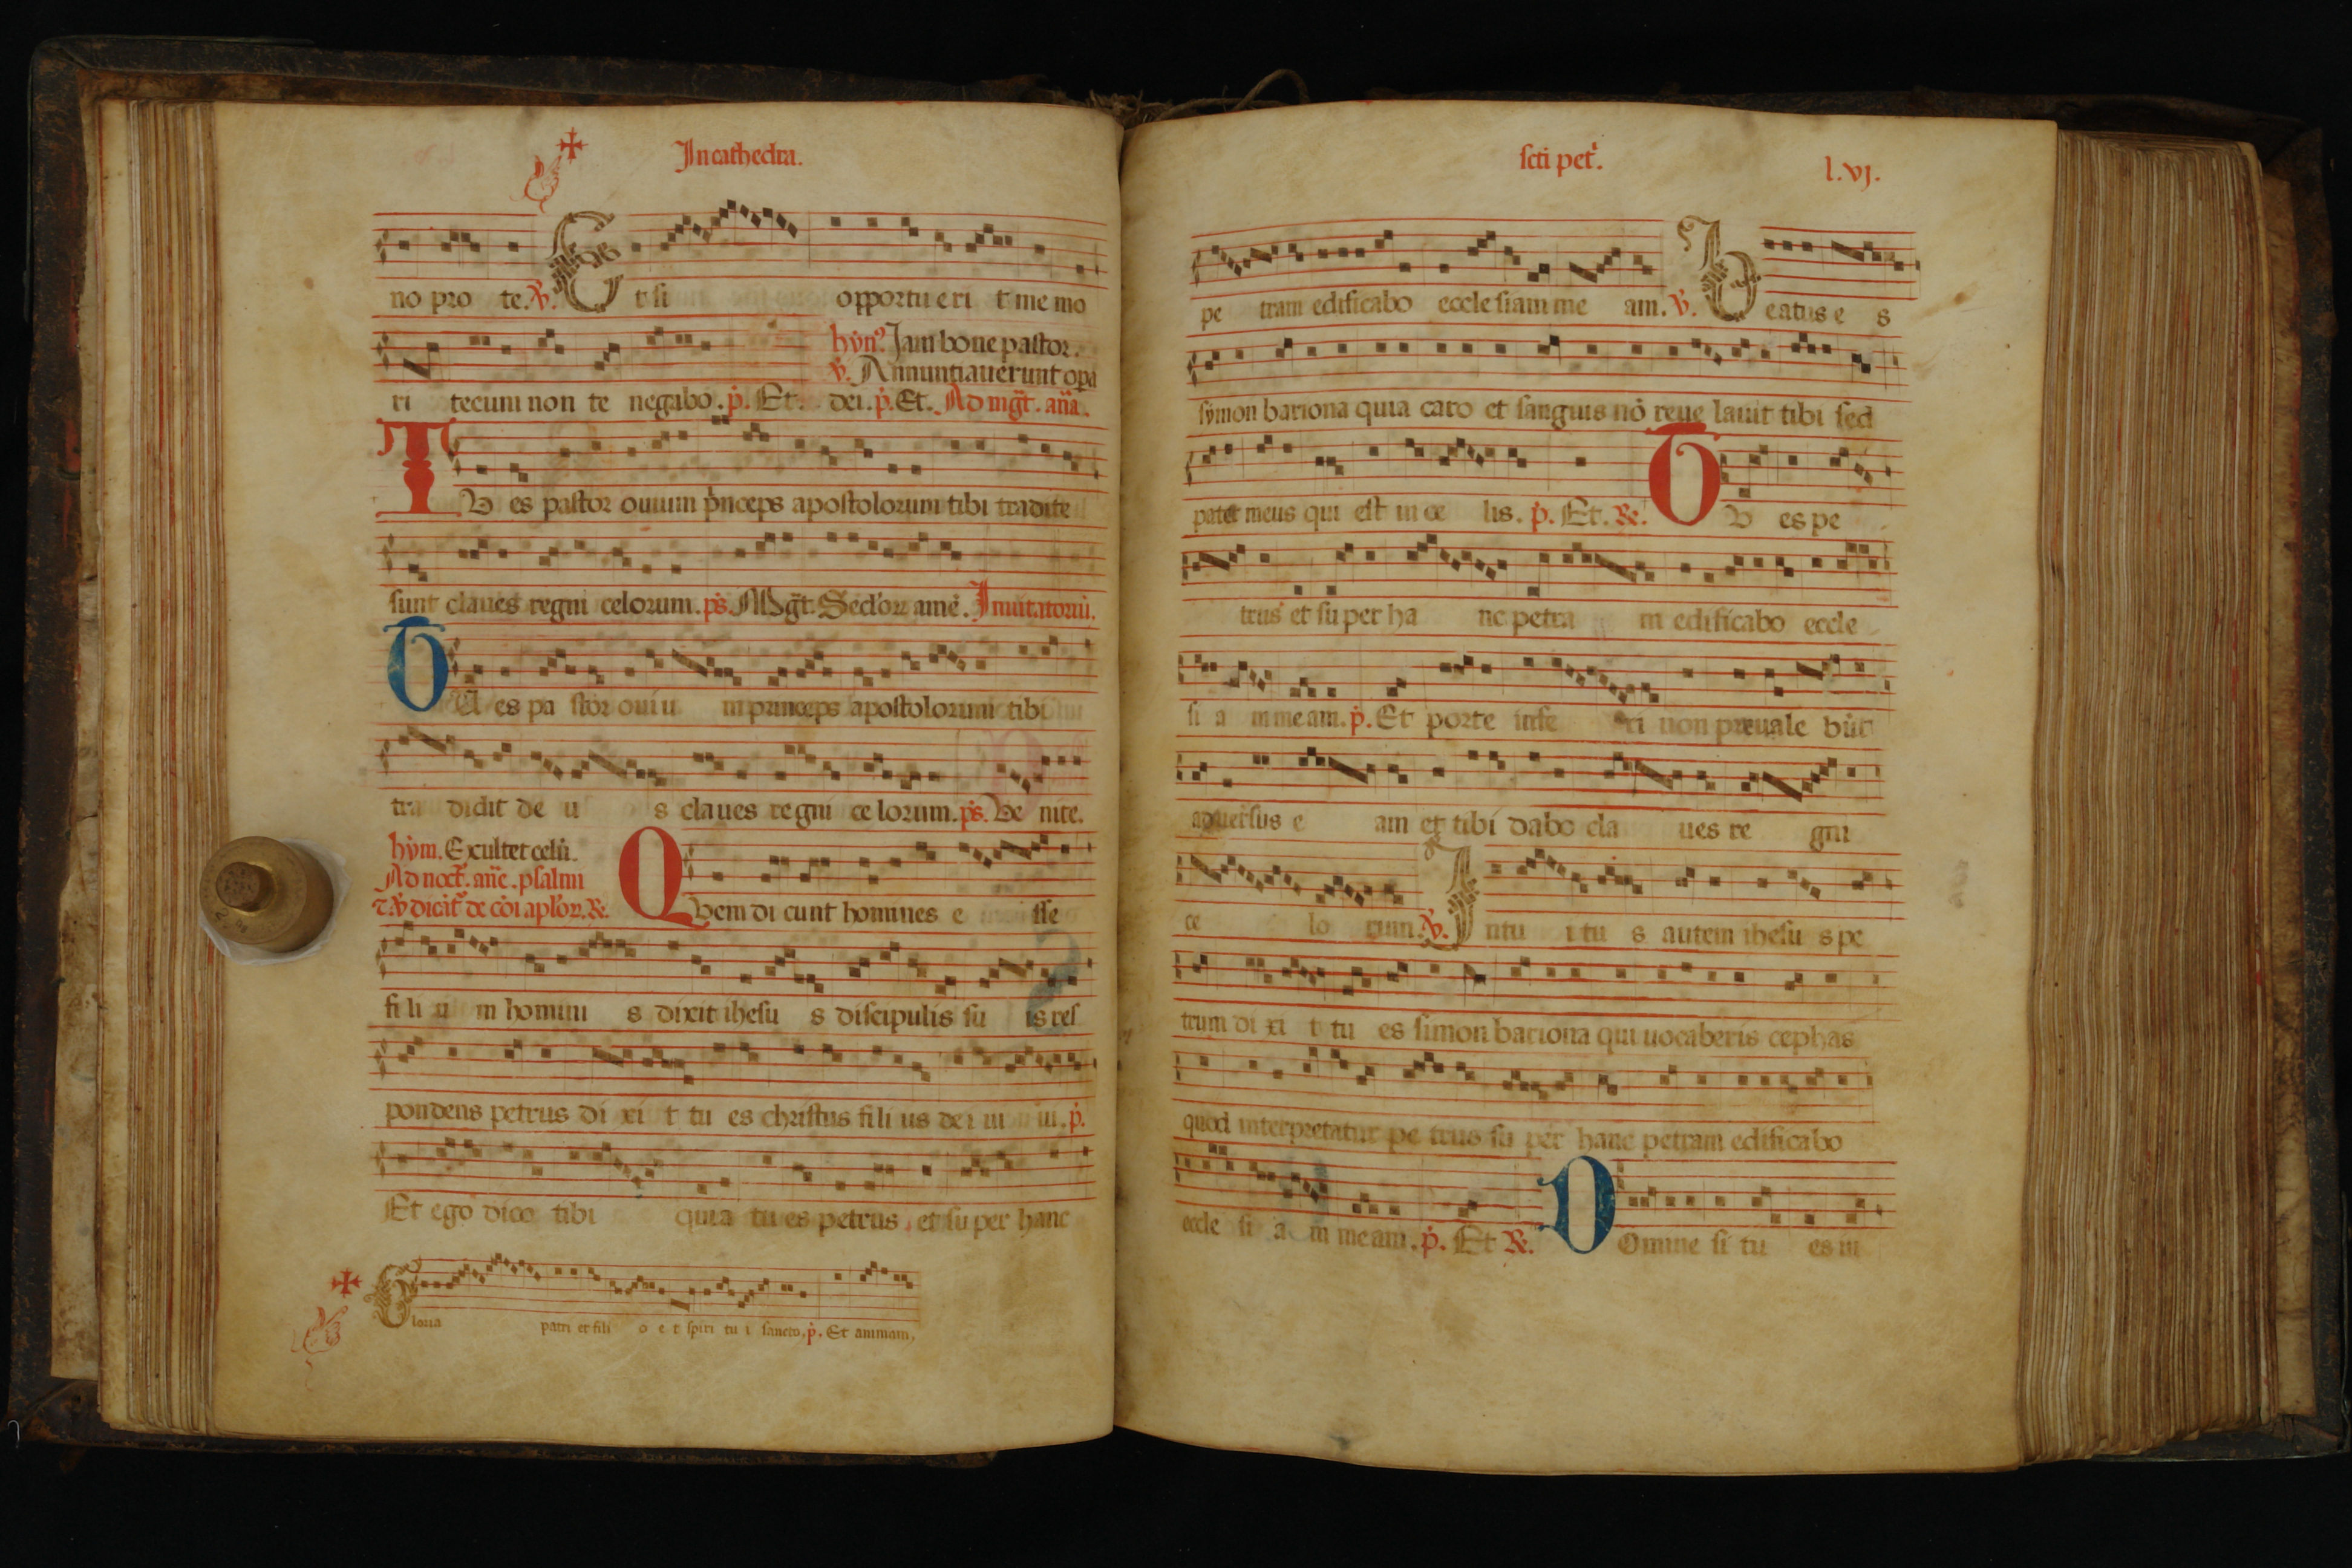 In cathedra.
no pro te. V. Et si opportueri t me mo
hyn? Jam bone pastor.
V. Annuntiauerunt opa
ri tecum non te negabo. p. Et. dei. p. Et. Ad mgt. ana.
TV es pastor ouium pnceps apostolorum tibi tradite
sunt claues regni celorum. ps. Mgt. Sedor ame. Inuitatoriu.
TU es pa stor ouiu m princeps apostolorum tibi
tra didit de u s claues regni ce lorum. ps. Ve nite.
hym. Exultet celu.
Ad noct. ane. psalmi
τ V dicat de coi aplor. R.
QVem di cunt homines e sse
fi li u m homini s dixit ihesu s discipulis su is res
pondens petrus di xi t tu es christus fili us de i ui ui. p.
Et ego dico tibi quia tu es petrus et su per hanc
Gloria patri et fili o e t spiri tu i sancto. p. Et animam.
scti pet.
l.vj.
pe tram edificabo eccle siam me am. V. Beatus e s
symon bariona quia caro et sanguis no reue lauit tibi sed
pater meus qui est in ce lis. p. Et. R. TV es pe
trus et su per ha nc petra m edificabo eccle
si a m meam. p. Et porte infe ri non preuale but
aduersus e am et tibi dabo cla ues re gni
ce lo rum. V. Intu itu s autem ihesu s pe
trum di xi t tu es simon bariona qui uocaberis cephas
quod interpretatur pe trus su per hanc petram edificabo
eccle si a m meam. p. Et R. DOmine si tu es iu